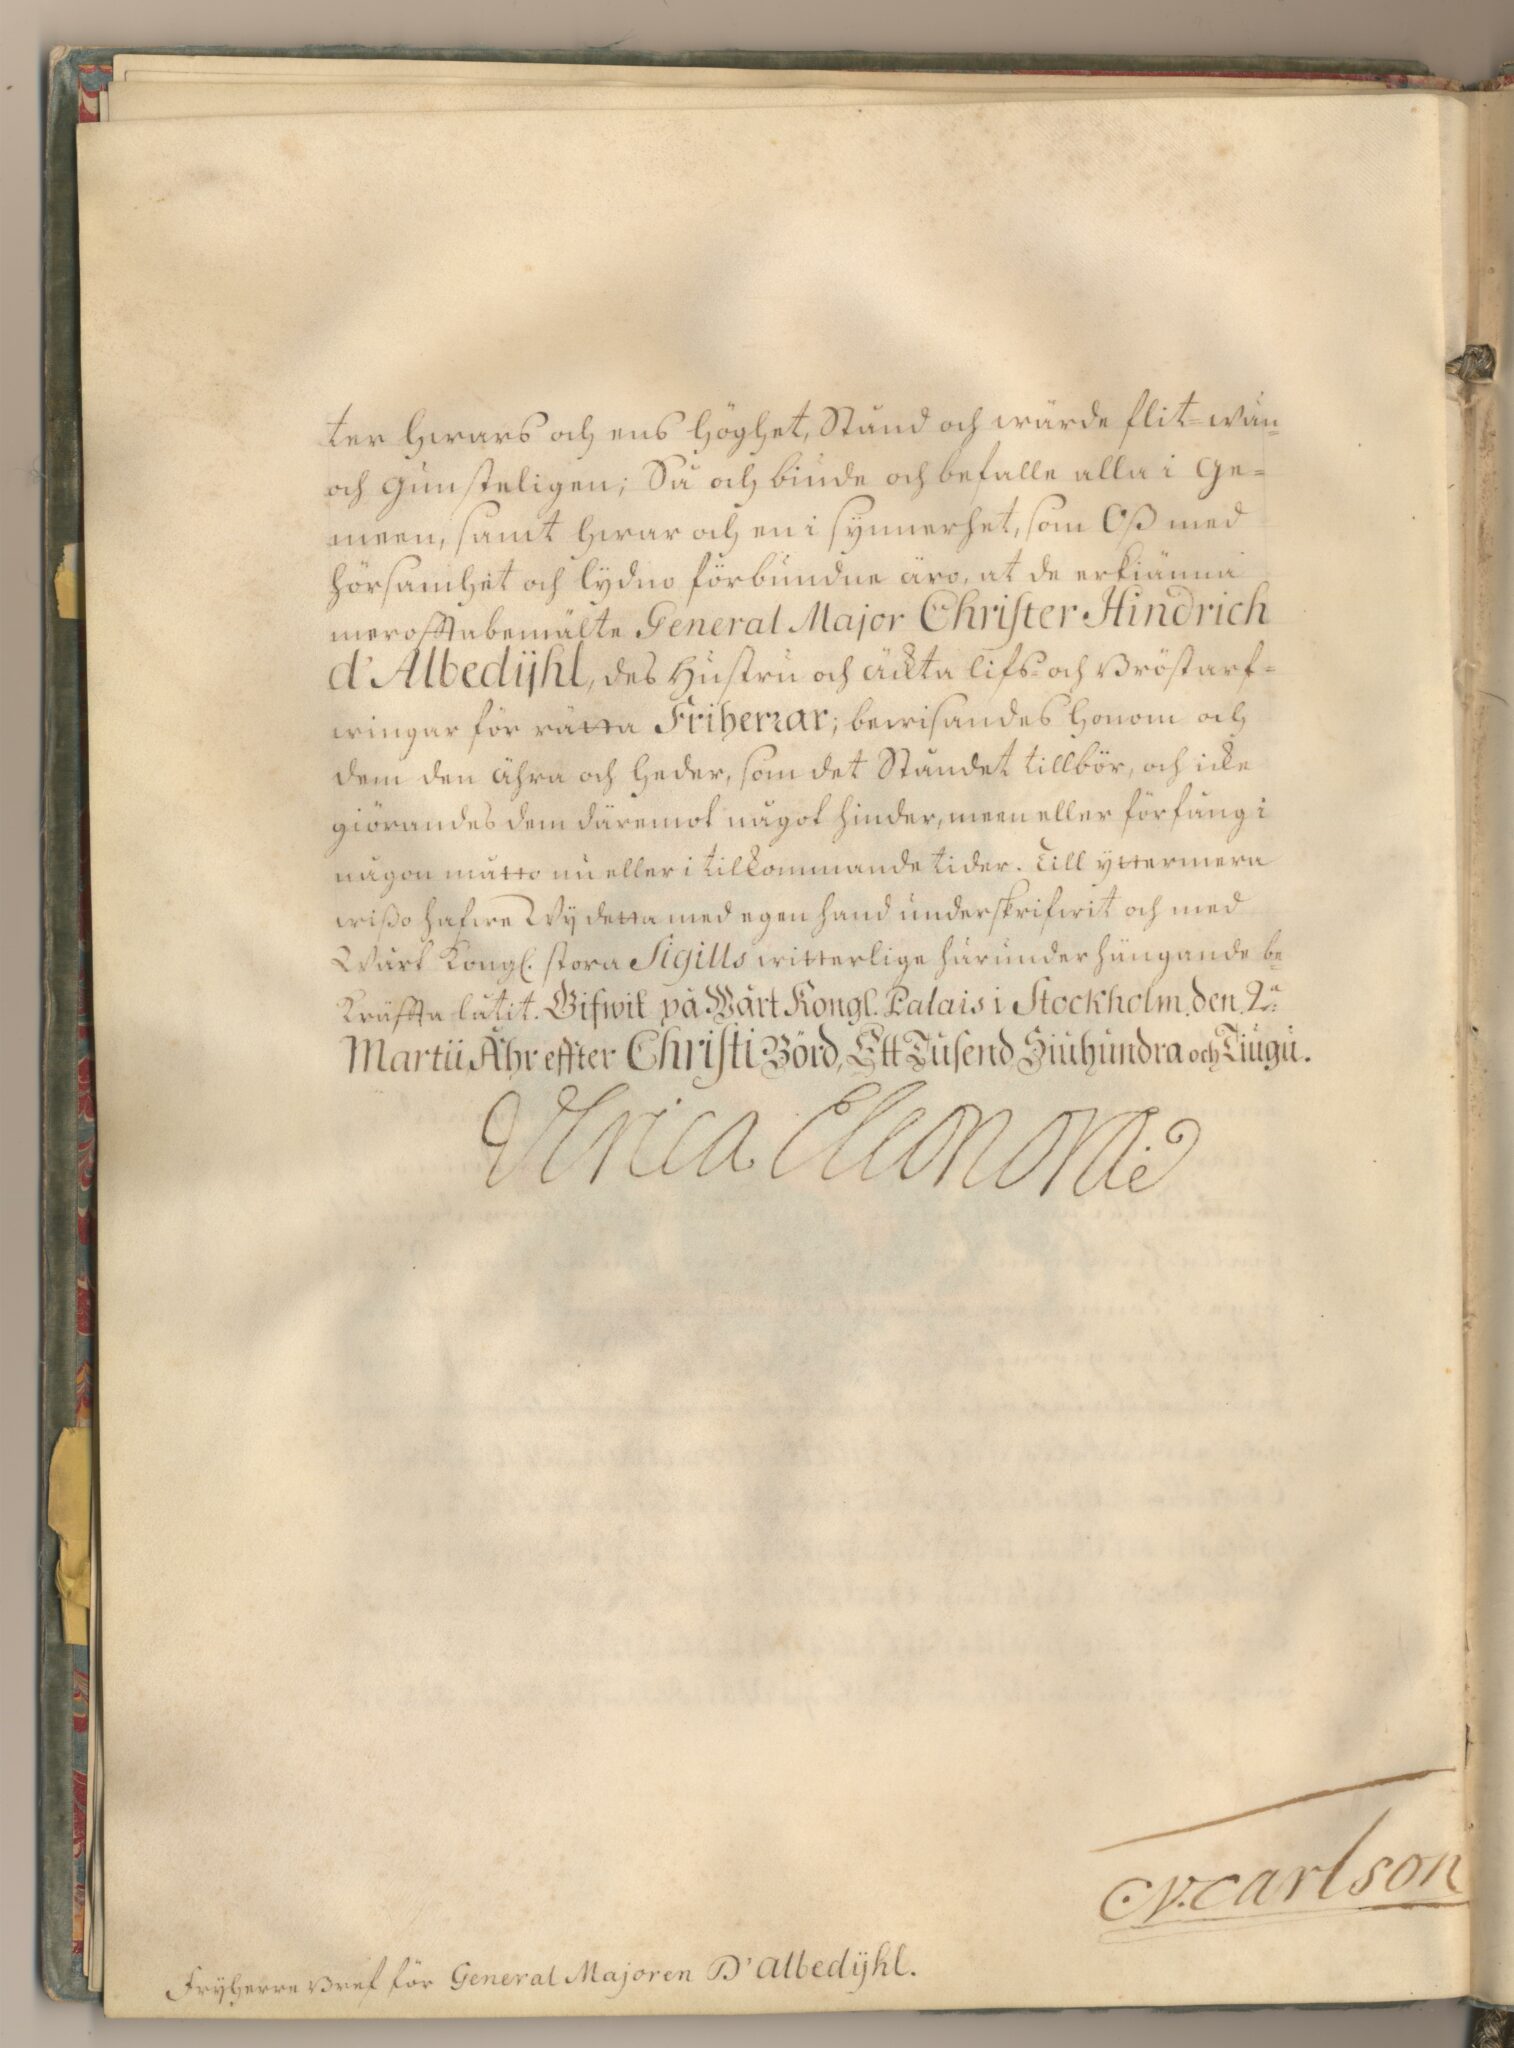 ter hwars och ens höghet, Stånd och wärde flit- wän-
och gunsteligen; Så och biude och befalle alla i Ge-
meen, samt hwar och en i synnerhet, som Oß med
hörsamhet och lydno förbundne äro, at de erkiänna
merofftabemälte General Major Christer Hindrich
d'Albedÿhl, des Hustru och äckta lifs- och Bröstarf-
wingar för rätta Friherrar; bewisandes honom och
dem den ähra och heder, som det Ståndet tillbör, och icke
giörandes dem däremot något hinder, meen eller förfång i
någon måtto nu eller i tilkommande tider. Till yttermera
wißo hafwe Wÿ detta med egen hand underskrifwit och med
Wårt Kongl. stora Sigills witterlige härunder hängande be-
kräffta låtit. Gifwit på Wårt Kongl. Palais i Stockholm, den 2.a
Martii, Åhr effter Christi Börd, Ett Tusend, Siuhundra och Tiugu.
Ulrica Eleonora
C. N. Carlson
Frÿherre Bref för General Majoren D'Albedÿhl.